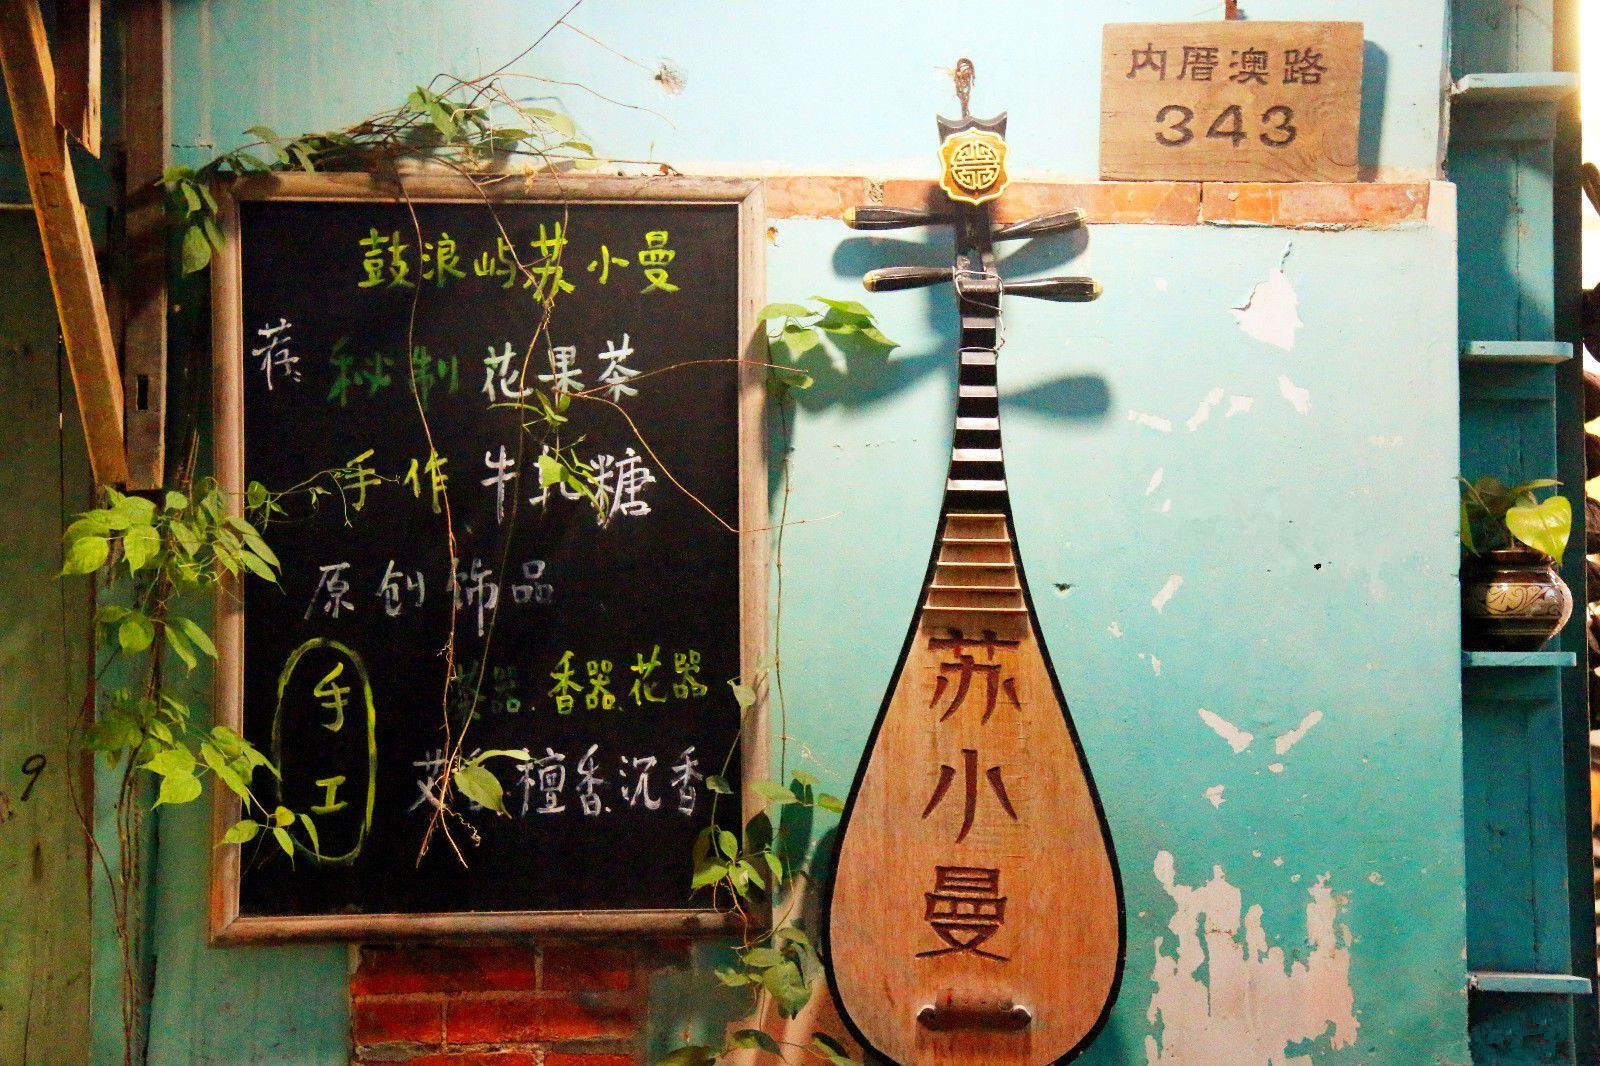 鼓浪屿苏小曼
荐 秘制 花果茶
手作 牛轧糖
原创饰品
手工
茶器、香器、花器
艾香、檀香、沉香
内厝澳路
343
苏小曼
9